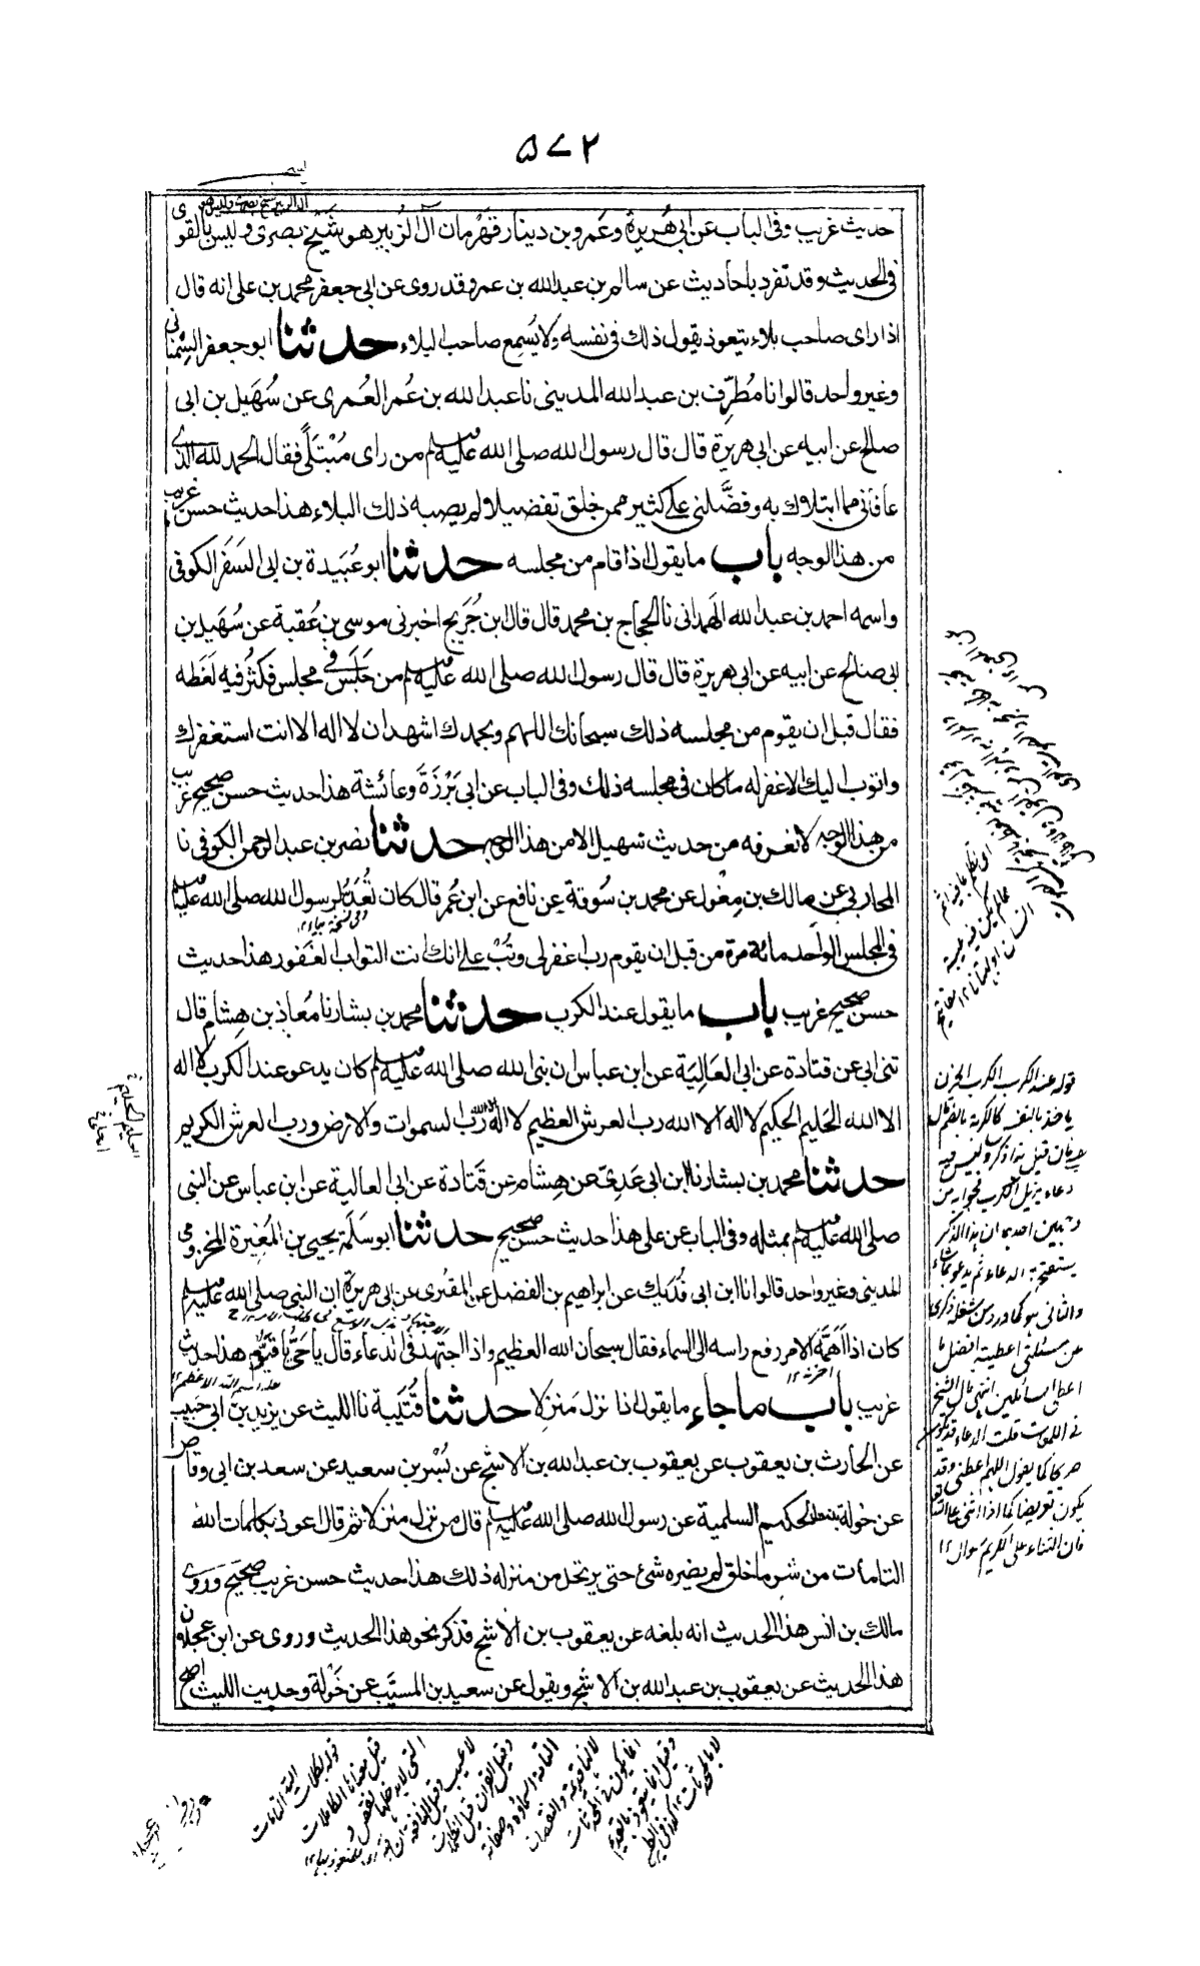 ۵۷۲
حدیث غریب وفی الباب عن ابی هُریرة وعَمرو بن دینار قهرمان ال الزبیر هو شیخ بصری ولیس بالقوی
فی الحدیث وقد تفرد باحادیث عن سالم بن عبد الله بن عمر وقد روی عن ابی جعفر محمد بن علی انه قال
اذا رای صاحب بلاء یتعوذ یقول ذلك فی نفسه ولا یُسمِع صاحب البلاء حدثنا ابو جعفر السِمنانی
وغیر واحد قالوا نا مُطَرِّف بن عبد الله المدینی نا عبد الله بن عُمر العُمری عن سُهَیل بن ابی
صالح عن ابیه عن ابی هریرة قال قال رسول الله صلی الله علیه وسلم من رای مُبْتَلًی فقال الحمد لله الذی
عافانی مما ابتلاك به وفضَّلنی علی کثیر ممن خلق تفضیلا لم یصبه ذلك البلاء هذا حدیث حسن غریب
من هذا الوجه باب ما یقول اذا قام من مجلسه حدثنا ابو عُبَیدة بن ابی السَفَر الکوفی
واسمه احمد بن عبد الله الهَمدانی نا الحجاج بن محمد قال قال ابن جُرَیج اخبرنی موسی بن عُقبة عن سُهَیل بن
ابی صالح عن ابیه عن ابی هریرة قال قال رسول الله صلی الله علیه وسلم من جَلَسَ فی مجلس فکثُر فیه لَغَطه
فقال قبل ان یقوم من مجلسه ذلك سبحانك اللهم وبحمدك اشهد ان لا اله الا انت استغفرك
واتوب الیك الا غفر له ما کان فی مجلسه ذلك وفی الباب عن ابی بَرْزَةَ وعائشة هذا حدیث حسن صحیح غریب
من هذا الوجه لا نعرفه من حدیث سهیل الا من هذا الوجه حدثنا نصر بن عبد الرحمن الکوفی نا
المحاربی عن مالك بن مِغْول عن محمد بن سُوقة عن نافع عن ابن عُمر قال کان تُعَدُّ لرسول الله صلی الله علیه وسلم
فی المجلس الواحد مائة مرة من قبل ان یقوم رب اغفر لی وتُبْ علی انك انت التواب الغفور هذا حدیث
حسن صحیح غریب باب ما یقول عند الکرب حدثنا محمد بن بشار نا مُعاذ بن هِشام قال
ثنی ابی عن قتادة عن ابی العَالِیَة عن ابن عباس ان نبی الله صلی الله علیه وسلم کان یدعو عند الکرب لا اله
الا الله الحَلیم الحکیم لا اله الا الله رب العرش العظیم لا اله الا الله رَبّ السموات والارض ورب العرش الکریم
حدثنا محمد بن بشار نا ابن ابی عَدِیّ عن هِشام عن قَتادة عن ابی العالیة عن ابن عباس عن النبی
صلی الله علیه وسلم بمثله وفی الباب عن علی هذا حدیث حسن صحیح حدثنا ابو سلَمة یحیی بن المُغِیرة المخزومی
المدینی وغیر واحد قالوا نا ابن ابی فُدَیك عن ابراهیم بن الفضل عن المقبُری عن ابی هریرة ان النبی صلی الله علیه وسلم
کان اذا اَهَمَّه الامر رفع راسه الی السماء فقال سبحان الله العظیم واذا اجتهد فی الدعاء قال یا حَیُّ یا قیوم هذا حدیث
غریب باب ما جاء ما یقول اذا نزل مَنزِلا حدثنا قُتَیبة نا اللیث عن یزید بن ابی حَبیب
عن الحارث بن یعقوب عن یعقوب بن عبد الله بن الاشج عن بُسْر بن سعید عن سعد بن ابی وقاص
عن خولة بنت الحکیم السلمیة عن رسول الله صلی الله علیه وسلم قال من نزل منزلا ثم قال اعوذ بکلمات الله
التامات من شر ما خلق لم یضره شئ حتی یرتحل من منزله ذلك هذا حدیث حسن غریب صحیح وروی
مالك بن انس هذا الحدیث انه بلغه عن یعقوب بن الاشج فذکر نحو هذا الحدیث وروی عن ابن عجلان
هذا الحدیث عن یعقوب بن عبد الله بن الاشج ویقول عن سعید بن المسیّب عن خَوْلة وحدیث اللیث اصح
قوله عند الکرب الکرب الحزن
یاخذ بالنفس
دعاء یزیل الکرب فجوابه من
یستفتح به الدعاء ثم یدعو بما شاء
والثانی هو کما ورد من شغله ذکری
عن مسئلتی اعطیته افضل ما
اعطی السائلین انتهی قال الشیخ
فی اللمعات قلت الدعاء قد یکون
صریحا کما یقول اللهم اعطنی وقد
یکون تعریضا کما اذا اثنی علی الله تع
فان الثناء علی الکریم سوال ۱۲
قوله بکلمات الله التامات
قیل معناه الکاملات